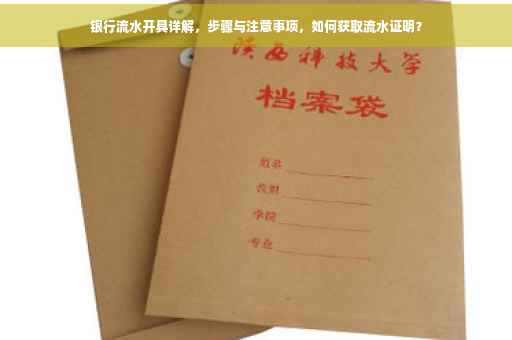 银行流水开具详解，步骤与注意事项，如何获取流水证明？
陕西科技大学
档案袋
姓名
学院
专业